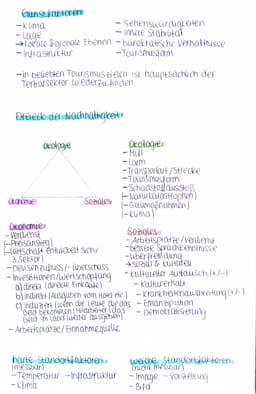 Gunstfaktoren
- Klima
- Lage
→ lokale & globale Ebenen
- Infrastruktur
- Sehenswürdigkeiten
- innere Stabilität
- bürokratische Verhältnisse
- Tourismusform
- in beliebten Tourismuszielen ist hauptsächlich der
Tertiärsektor wiederzufinden
Dreieck der Nachhaltigkeit
Ökologie
Ökonomie
Soziales
Ökologie:
- Müll
- Lärm
- Transportart/Strecke
- Tourismusform
- Schadstoffausstoß
(- Naturkatastrophen)
(- Baumaßnahmen)
(- Klima)
Ökonomie:
- Verdienst
(- Preisanstieg)
(- Wirtschaft entwickelt sich/
3. Sektor)
- Devisenzufluss/- überschuss
- Investitionen/Wertschöpfung
a) direkt (direkte Einkäufe)
b) indirekt (Ausgaben vom Hotel etc.)
c) induziert (wenn die Leute die das
Geld bekommen (Mitarbeiter) das
Geld im Land wieder ausgeben)
- Arbeitsplätze/Einnahmequelle
Soziales:
- Arbeitsplätze/Verdienst
- bessere Sprachkenntnisse
- Überfremdung
→ sozial & kulturell
- kultureller Austausch (+/-)
- Kulturerhalt
- Krankheitenausbreitung (+/-)
- Emanzipation
- Demokratisierung
harte Standortfaktoren
(messbar)
- Temperatur - Infrastruktur
- Klima
weiche Standortfaktoren
(nicht messbar)
- Image - Vorstellung
- Bild